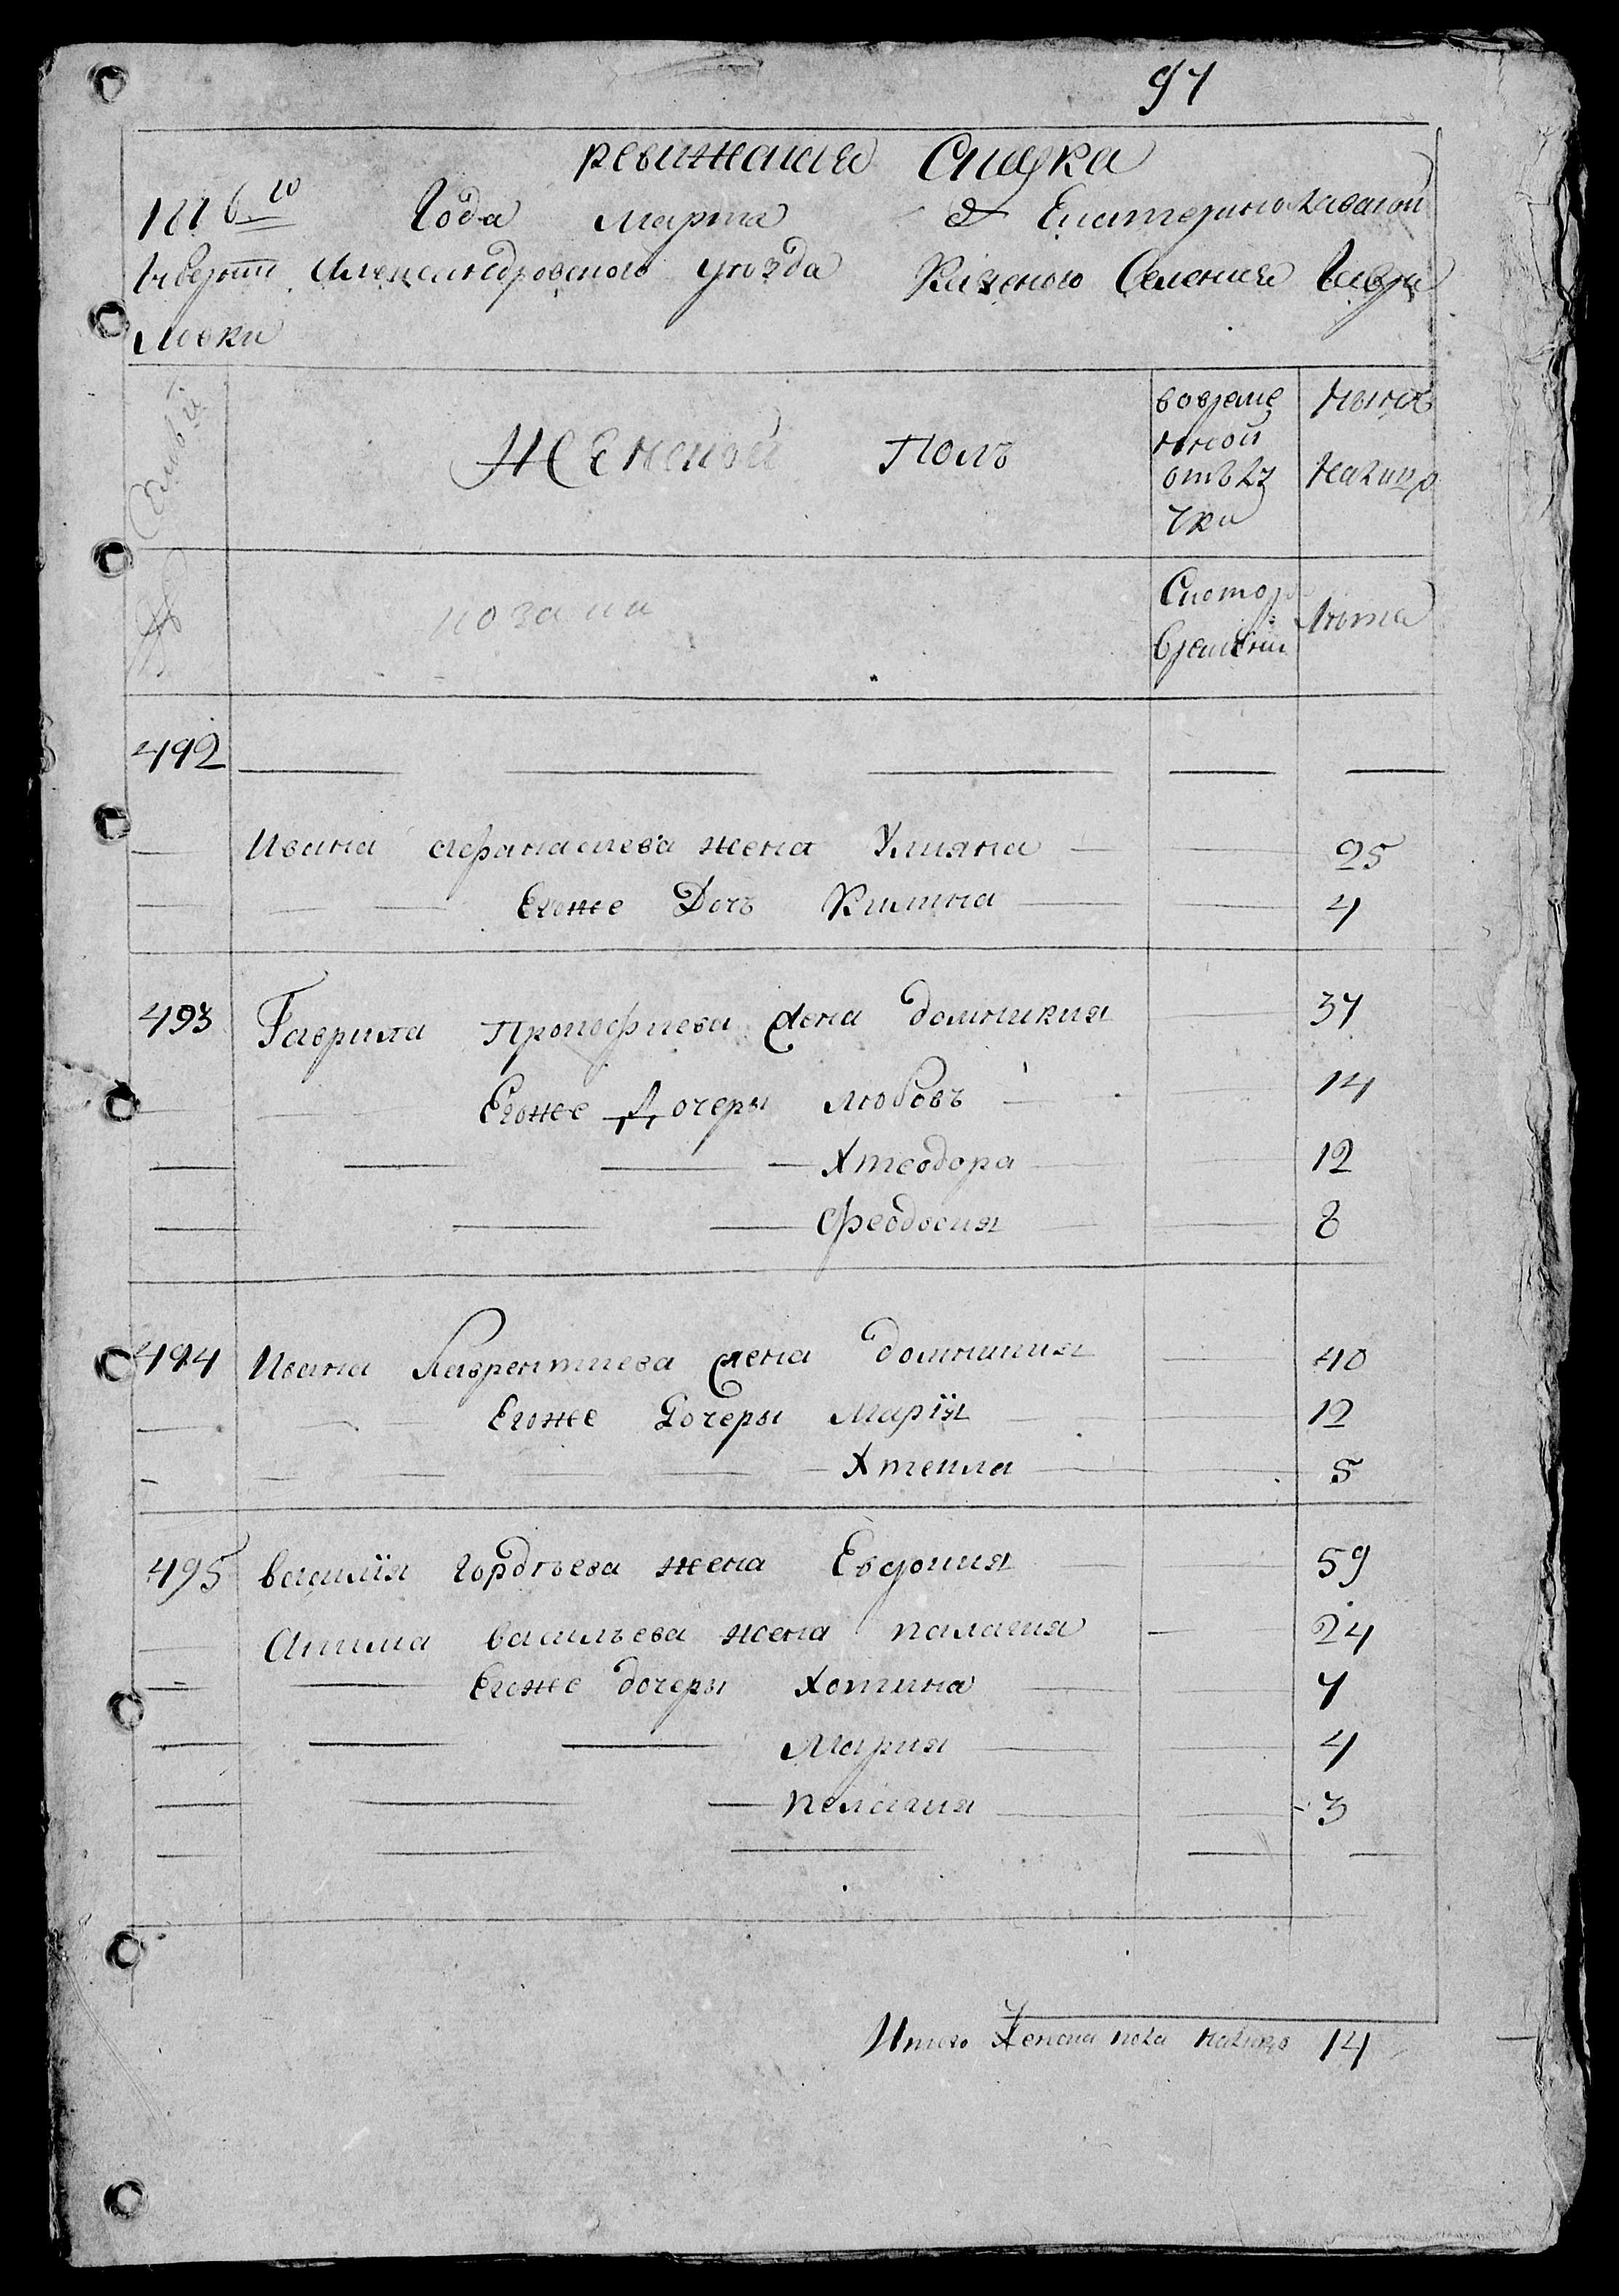 97
ревижская Сказка
1816го Года Марта д Екатеринославской
Губернии Александровского уезда Казеного Селения Гаври
ловки
Семьи
Женский Полъ
вовреме
нной
отълу
чки
Ныне
налицо
№
Скотор
времени
Лета
492
Ивана афанасиева жена Улияна 25
Егоже Дочъ Килина 4
493 Гаврила Прокофиева жена домникия 37
Егоже Дочеры любовъ 14
Хтеодора 12
Феодосия 8
494 Ивана Лаврентиева жена домникия 40
Егоже Дочеры Марїя 12
Хтекла 5
495 василїя гордъева жена Евдокия 59
Акима василъева жена палагия 24
Егоже дочеры Хотина 7
Мария 4
пелагия 3
Итого Женска пола налицо 14